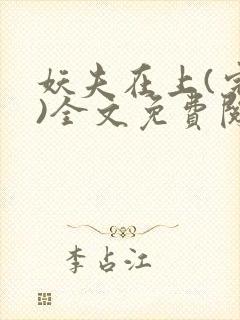 妖夫在上(完
)全文免費閱
李占江